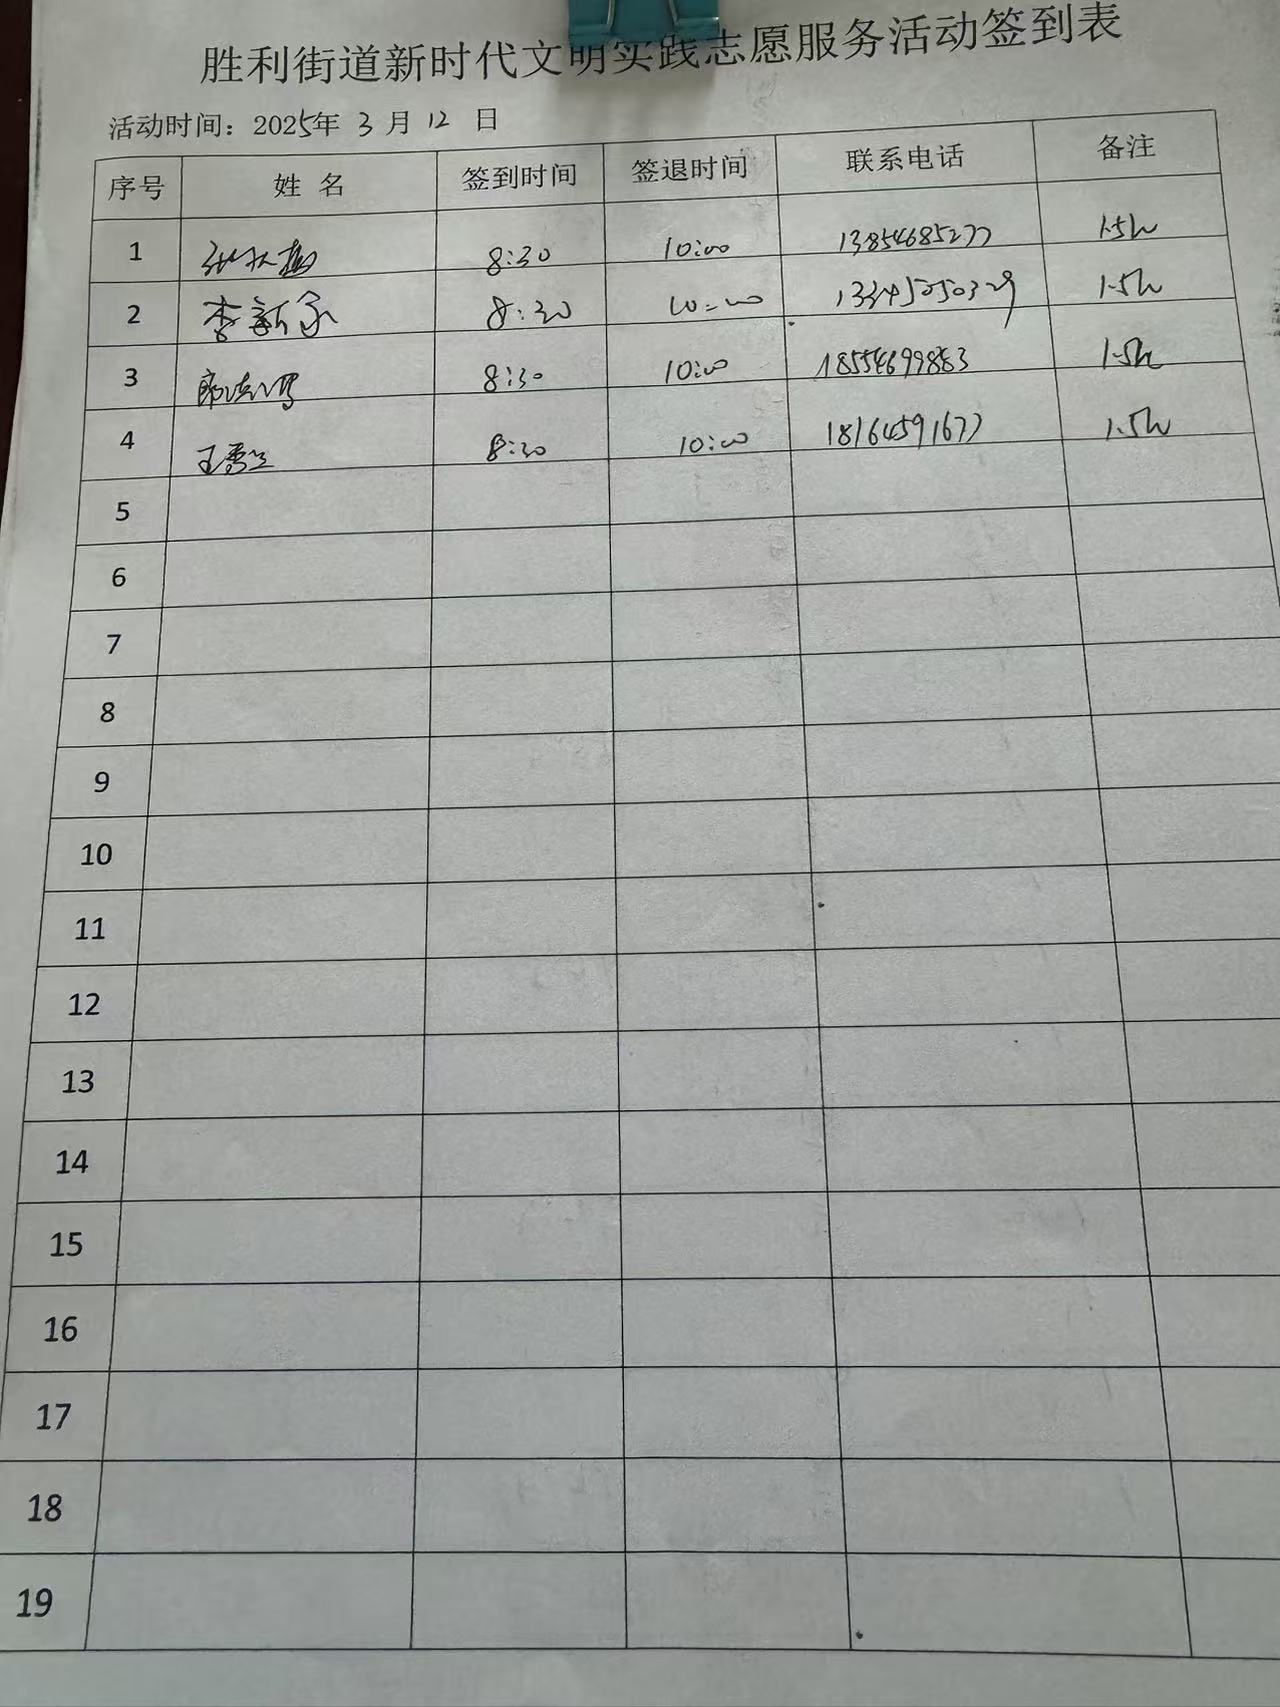 胜利街道新时代文明实践志愿服务活动签到表
活动时间：2025年 3 月 12 日
序号 姓 名 签到时间 签退时间 联系电话 备注
1 8:30 10:00 13854685277 1.5h
2 李新 8:30 10:00 1.5h
3 8:30 10:00 18554699883 1.5h
4 王秀兰 8:30 10:00 18164591677 1.5h
5
6
7
8
9
10
11
12
13
14
15
16
17
18
19